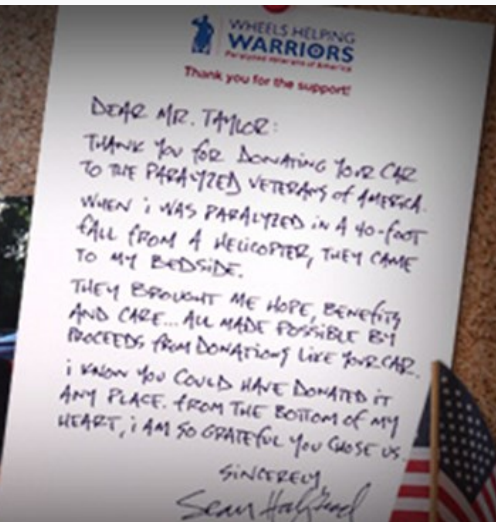 WHEELS HELPING
WARRIORS
Paralyzed Veterans of America
Thank you for the support!
DEAR MR. TAYLOR:
THANK YOU FOR DONATING YOUR CAR
TO THE PARALYZED VETERANS of AMERICA.
WHEN i WAS PARALYZED iN A 40-FOOT
fALL fROM A HELICOPTER, THEY CAME
TO MY BEDSiDE.
THEY BROUGHT ME HOPE, BENEFiTS
AND CARE... ALL MADE POSSiBLE BY
PROCEEDS fROM DONATIONS LIKE YOUR CAR.
i KNOW YOU COULD HAVE DONATED iT
ANY PLACE. fROM THE BOTTOM of MY
HEART, i AM SO GRATEFUL YOU CHOSE US.
SiNCERELY,
Sean